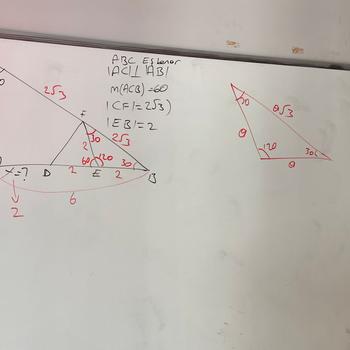 ABC Eşkenar
|AC|⊥|AB|
m(ACB)=60
|CF|=2√3)
|EB|=2
2√3
F
30
2√3
2
60
120
30
x=?
D
2
E
2
B
2
6
30
θ√3
θ
120
30
θ